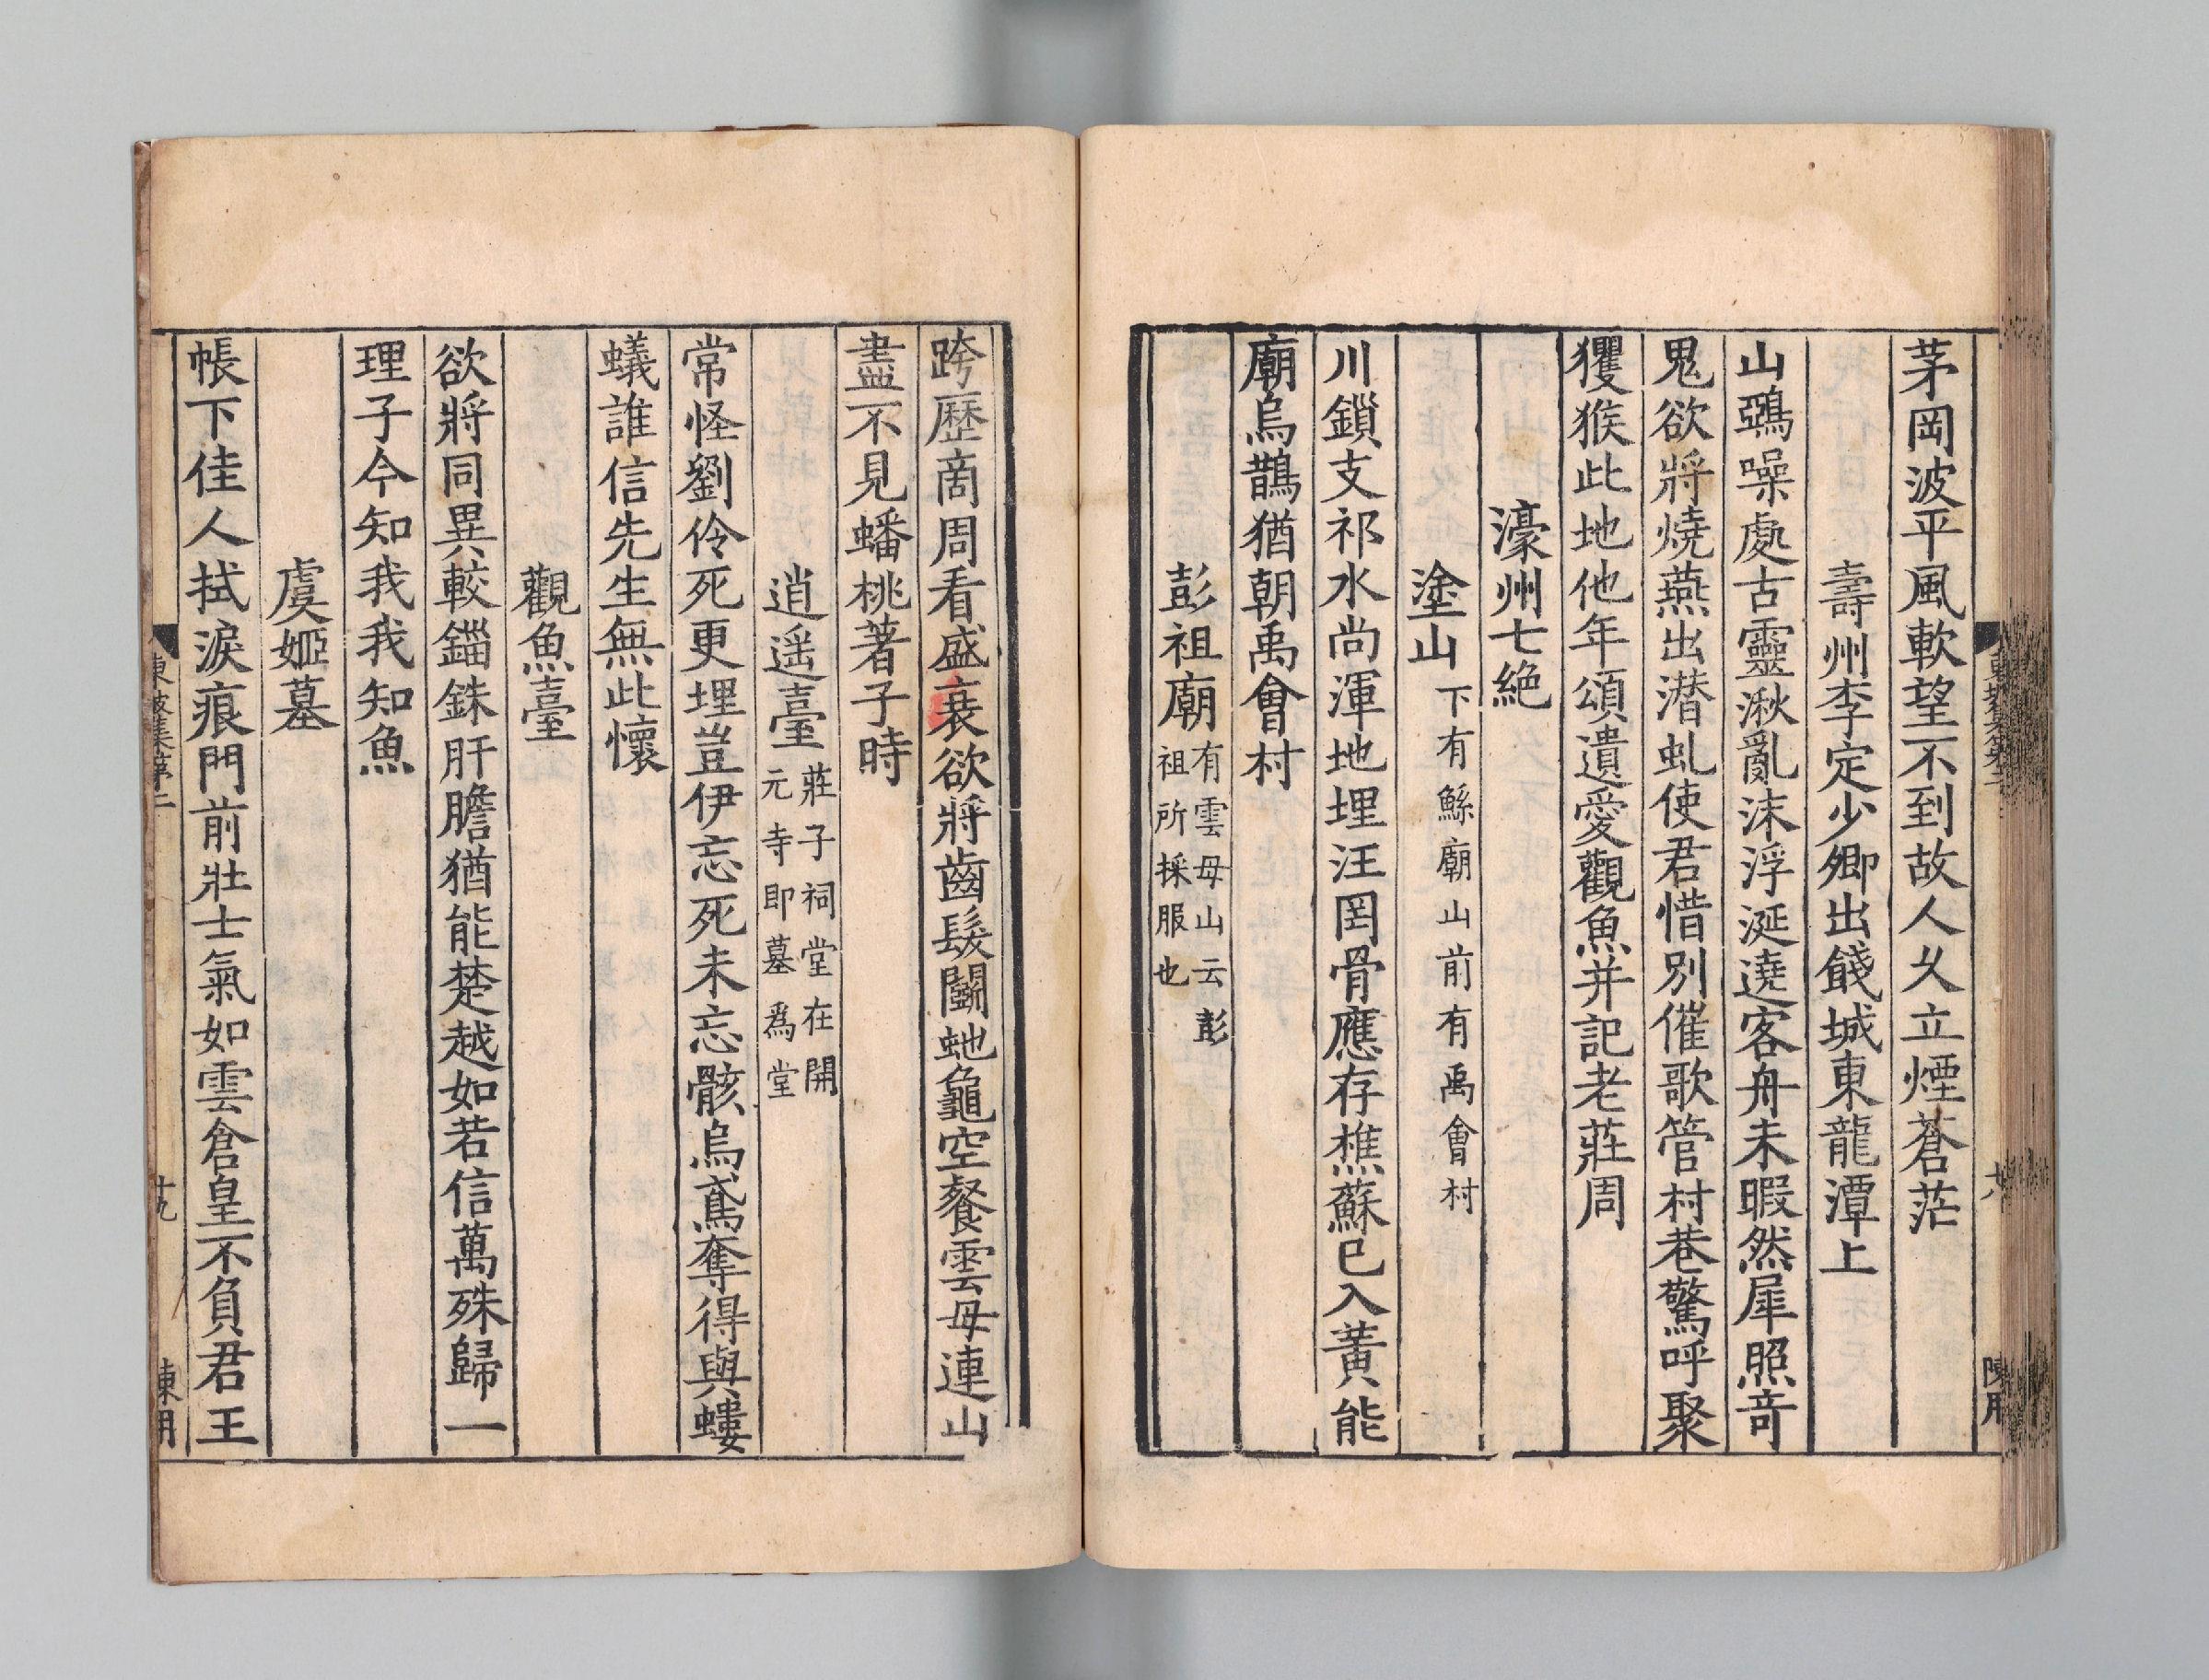 茅岡波平風軟望不到故人久立煙蒼茫
壽州李定少卿出餞城東龍潭上
山鵶噪處古靈湫亂沫浮涎遶客舟未暇然犀照竒
鬼欲將燒燕出潜虬使君惜別催歌管村巷驚呼聚
玃猴此地他年頌遺愛觀魚并記老莊周
濠州七絶
塗山下有鯀廟山前有禹會村
川鎖支祁水尚渾地埋汪罔骨應存樵蘇已入黃能
廟烏鵲猶朝禹會村
彭祖廟有雲母山云彭
祖所採服也
跨歷商周看盛衰欲將齒髮鬬虵龜空餐雲母連山
盡不見蟠桃著子時
逍遥臺莊子祠堂在開
元寺即墓爲堂
常怪劉伶死更埋豈伊忘死未忘骸烏鳶奪得與螻
蟻誰信先生無此懷
觀魚臺
欲將同異較錙銖肝膽猶能楚越如若信萬殊歸一
理子今知我我知魚
虞姬墓
帳下佳人拭淚痕門前壯士氣如雲倉皇不負君王
東坡集第二
十九